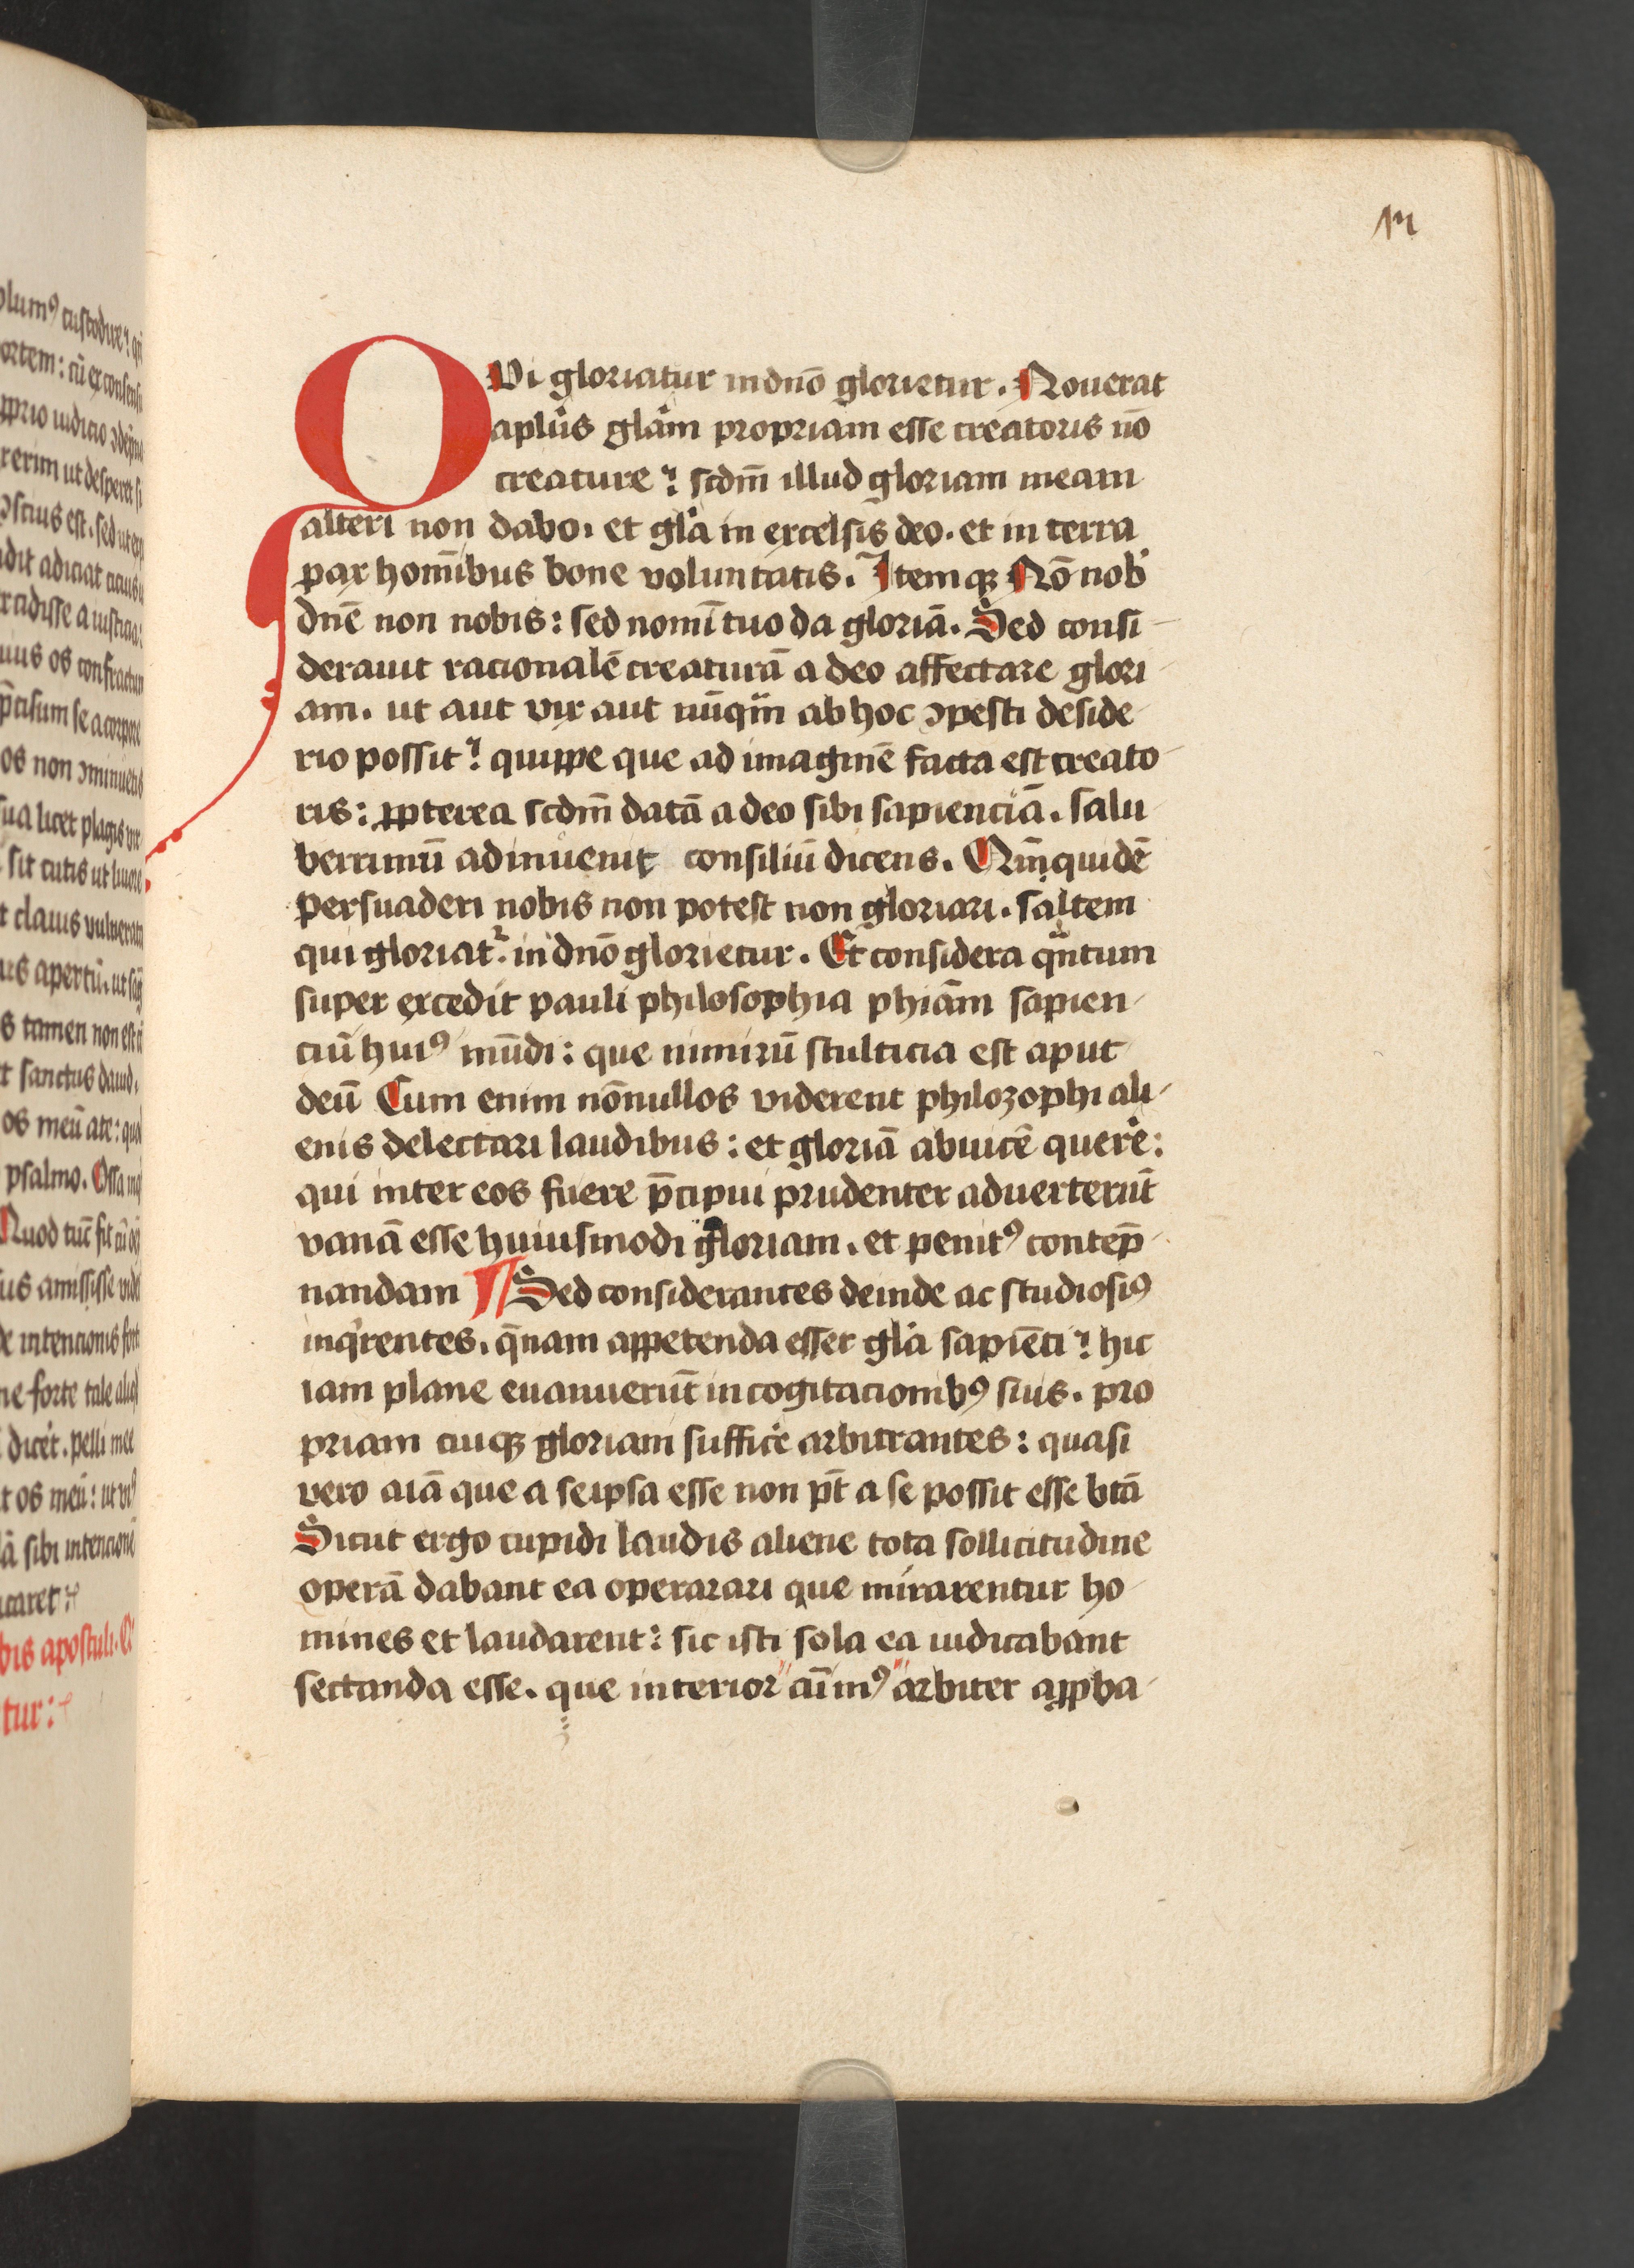 m
QVi gloriatur in dno̅ glorietur. Nouerat
apl̅us gla̅m propriam esse creatoris no̅
creature? scdm̅ illud gloriam meam
alteri non dabo. et gla̅ in excelsis deo. et in terra
pax homi̅bus bone voluntatis. Itemqꝫ No̅ nob̅
dne̅ non nobis: sed nomi̅ tuo da gloria̅. Sed consi-
derauit racionale̅ creatura̅ a deo affectare glori-
am. ut aut vix aut nu̅qm̅ ab hoc ꝯpesti deside-
rio possit? quippe que ad imagine̅ facta est creato-
ris: ꝓpterea scdm̅ data̅ a deo sibi sapiencia̅. salu-
berrimu̅ adinuenit consiliu̅ dicens. Qm̅ quide̅
persuaderi nobis non potest non gloriari. saltem
qui gloriat̉. in dno̅ glorietur. Et considera qn̅tum
super excedit pauli philosophia phia̅m sapien-
ciu̅ huiꝰ mu̅di: que nimiru̅ stulticia est aput
deu̅ Cum enim no̅nullos viderent philozophi ali-
enis delectari laudibus: et gloria̅ abuice̅ quere̅:
qui inter eos fuere p̅cipui prudenter aduerteru̅t
vana̅ esse huiusmodi gloriam. et penitꝰ contep̅-
nandam ¶ Sed considerantes deinde ac studiosiꝰ
inqͥrentes. q̅nam appetenda esset gla̅ sapie̅ti? hic
iam plane euanueru̅t in cogitacionibꝰ suis. pro
priam cuiqꝫ gloriam suffice̅ arbitrantes: quasi
vero aia̅ que a seipsa esse non pt̅ a se possit esse bta̅
Sicut ergo cupidi laudis aliene tota sollicitudine
opera̅ dabant ea operarari que mirarentur ho-
mines et laudarent: sic isti sola ea iudicabant
sectanda esse. que interior cu̅imꝰ arbiter apꝓba-